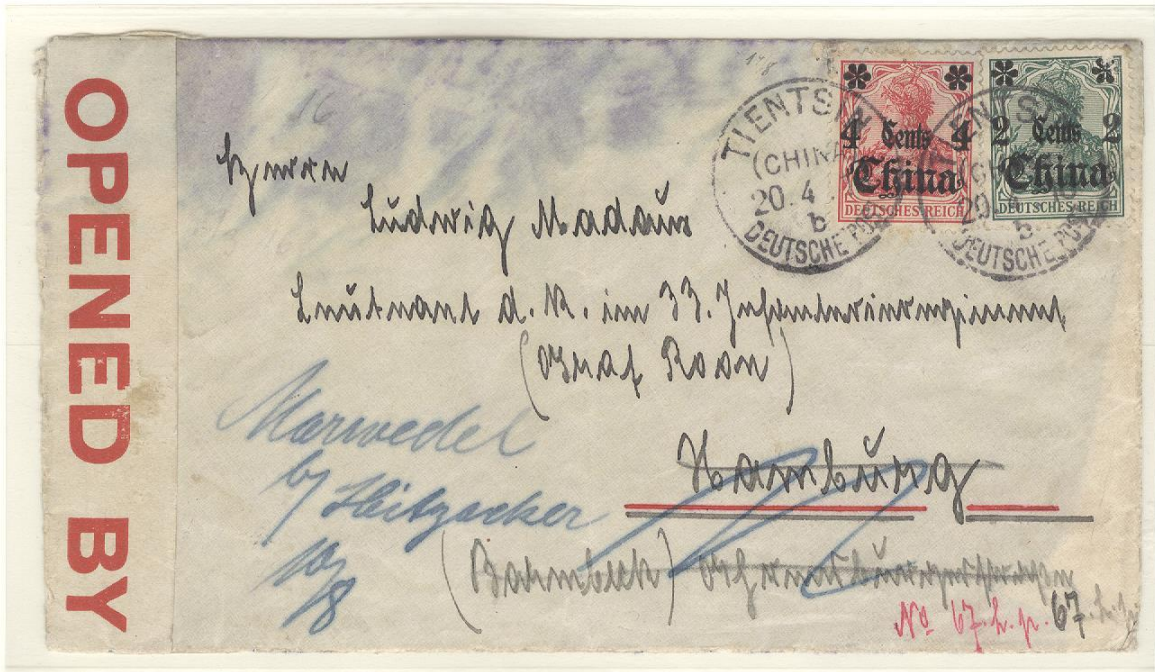 OPENED BY
16
TIENTSIN
(CHINA)
20.4
b
DEUTSCHE POST
4 Cents 4
China
DEUTSCHES REICH
2 Cents 2
China
DEUTSCHES REICH
TIENTSIN
20.
b
DEUTSCHE POST
Herrn
Ludwig Madaus
Leutnant d. R. im 33. Infanterieregiment
(Graf Roon)
Hamburg
Marwedel
b/ Hitzacker
10/8
(Barmbeck)
No 67. h. p. 67. h. p.